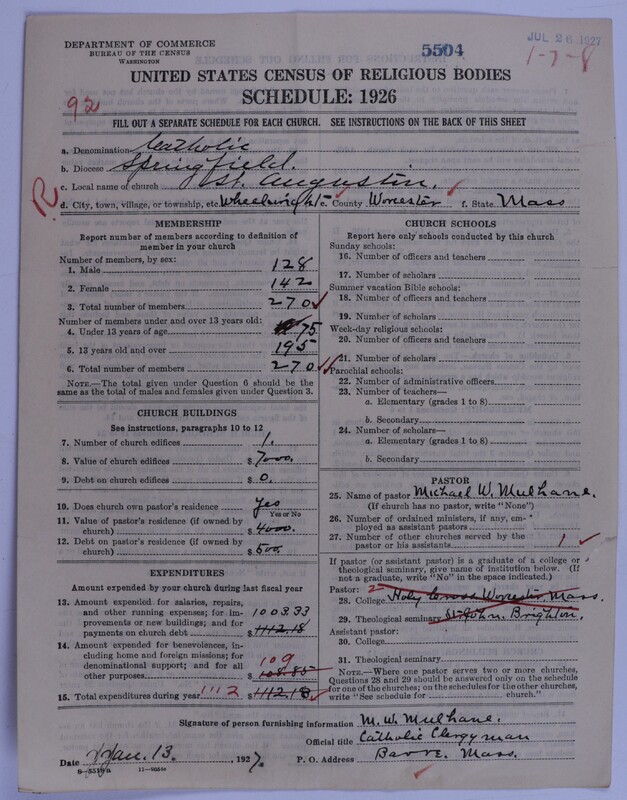 DEPARTMENT OF COMMERCE
BUREAU OF THE CENSUS
WASHINGTON
5504
JUL 26 1927
1-7-8
UNITED STATES CENSUS OF RELIGIOUS BODIES
SCHEDULE: 1926
92
FILL OUT A SEPARATE SCHEDULE FOR EACH CHURCH. SEE INSTRUCTIONS ON THE BACK OF THIS SHEET
a. Denomination Catholic
b. Diocese Springfield.
c. Local name of church St. Augustin.
R
d. City, town, village, or township, etc. Wheelwright e. County Worcester f. State Mass
MEMBERSHIP
Report number of members according to definition of
member in your church
Number of members, by sex:
1. Male 128
2. Female 142
3. Total number of members 270
Number of members under and over 13 years old:
4. Under 13 years of age 75
5. 13 years old and over 195
6. Total number of members 270
NOTE.—The total given under Question 6 should be
same as the total of males and females given under Question 3.
CHURCH BUILDINGS
See instructions, paragraphs 10 to 12
7. Number of church edifices 1.
8. Value of church edifices $ 7000.
9. Debt on church edifices $ 0.
10. Does church own pastor's residence Yes
Yes or No
11. Value of pastor's residence (if owned by
church) $ 4000.
12. Debt on pastor's residence (if owned by
church) $ 500.
EXPENDITURES
Amount expended by your church during last fiscal year
13. Amount expended for salaries, repairs,
and other running expenses; for im-
provements or new buildings; and for
payments on church debt $ 1003.33
1112.18
14. Amount expended for benevolences, in-
cluding home and foreign missions; for
denominational support; and for all
other purposes $ 109
108.85
15. Total expenditures during year 1112 $ 1112.18
CHURCH SCHOOLS
Report here only schools conducted by this church
Sunday schools:
16. Number of officers and teachers
17. Number of scholars
Summer vacation Bible schools:
18. Number of officers and teachers
19. Number of scholars
Week-day religious schools:
20. Number of officers and teachers
21. Number of scholars
Parochial schools:
22. Number of administrative officers
23. Number of teachers—
a. Elementary (grades 1 to 8)
b. Secondary
24. Number of scholars—
a. Elementary (grades 1 to 8)
b. Secondary
PASTOR
25. Name of pastor Michael W. Mulhane.
(If church has no pastor, write "None")
26. Number of ordained ministers, if any, em-
ployed as assistant pastors
27. Number of other churches served by the
pastor or his assistants 1
If pastor (or assistant pastor) is a graduate of a college or
theological seminary, give name of institution below. (If
not a graduate, write "No" in the space indicated.)
Pastor: 2
28. College Holy Cross Worcester, Mass.
29. Theological seminary St. John. Brighton.
Assistant pastor:
30. College
31. Theological seminary
NOTE.—Where one pastor serves two or more churches,
Questions 28 and 29 should be answered only on the schedule
for one of the churches; on the schedules for the other churches,
write "See schedule for church."
Signature of person furnishing information M. W. Mulhane.
Official title Catholic Clergyman
Date Jan. 13. 1927.
P. O. Address Barre. Mass.